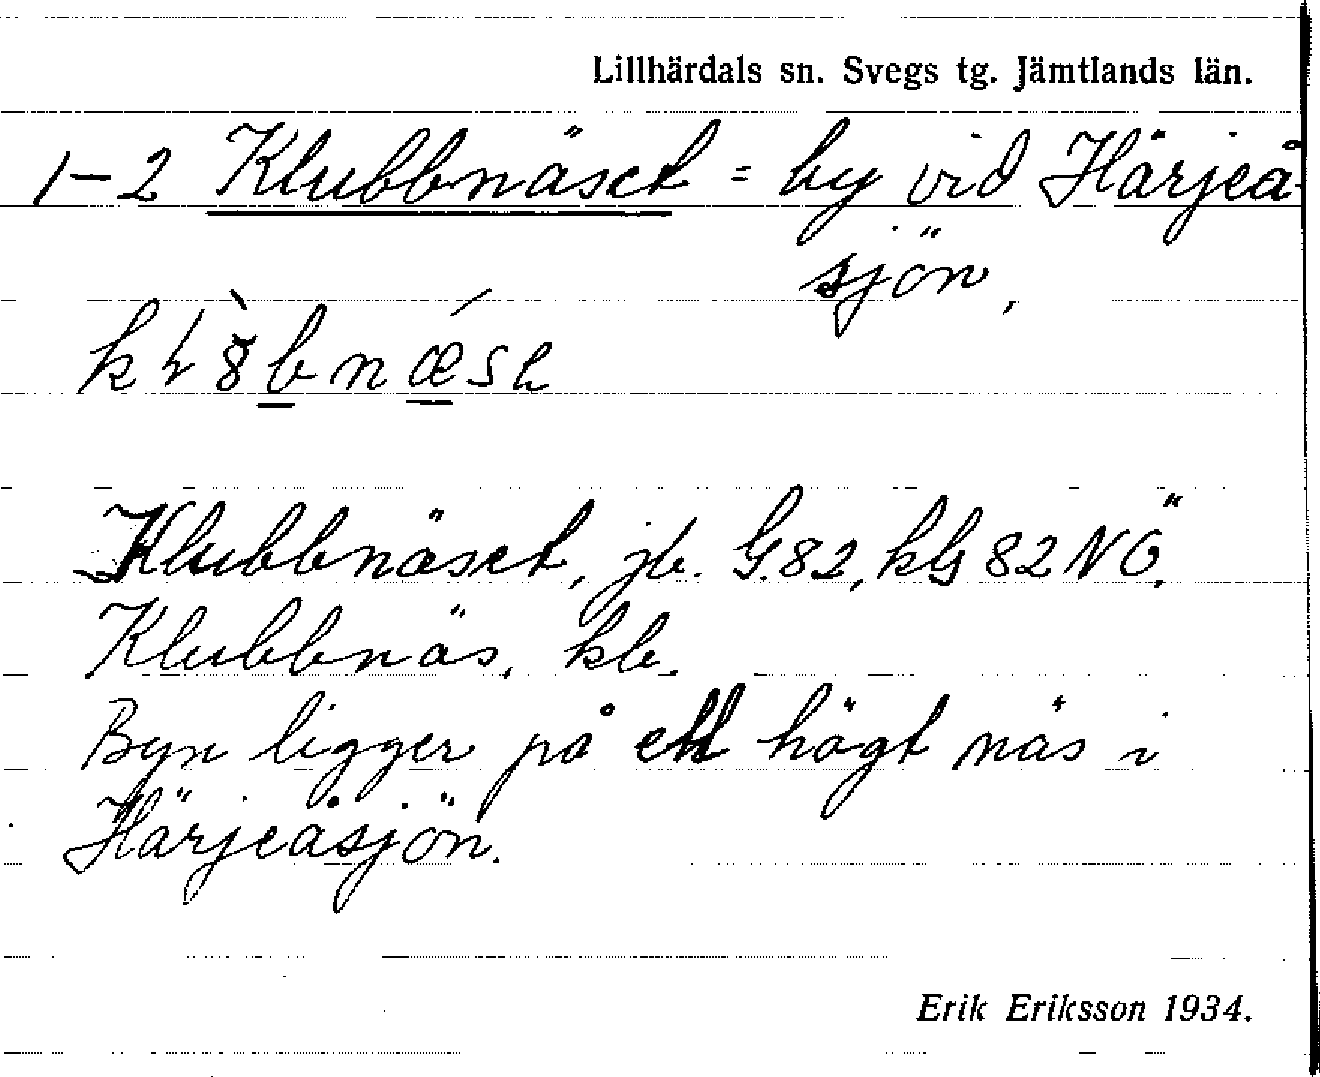 Lillhärdals sn. Svegs tg. Jämtlands län.
1-2 Klubbnäset = by vid Härjeå-
sjön.
Klubbnäset, jb. G.82, kG 82 NÖ.
Klubbnäs, kb.
Byn ligger på ett högt näs i
Härjeåsjön.
Erik Eriksson 1934.